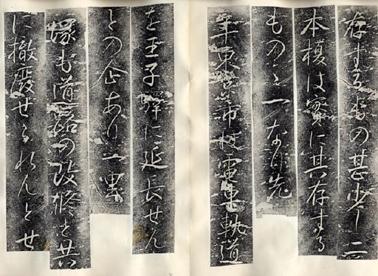 存する の甚少し二
本榎は實に其存する
ものゝ一なり先
年東京市 電車軌道
を王子驛に延長せん
との企あり一里
塚も道路の改修と共
に撤廢せられんとせ